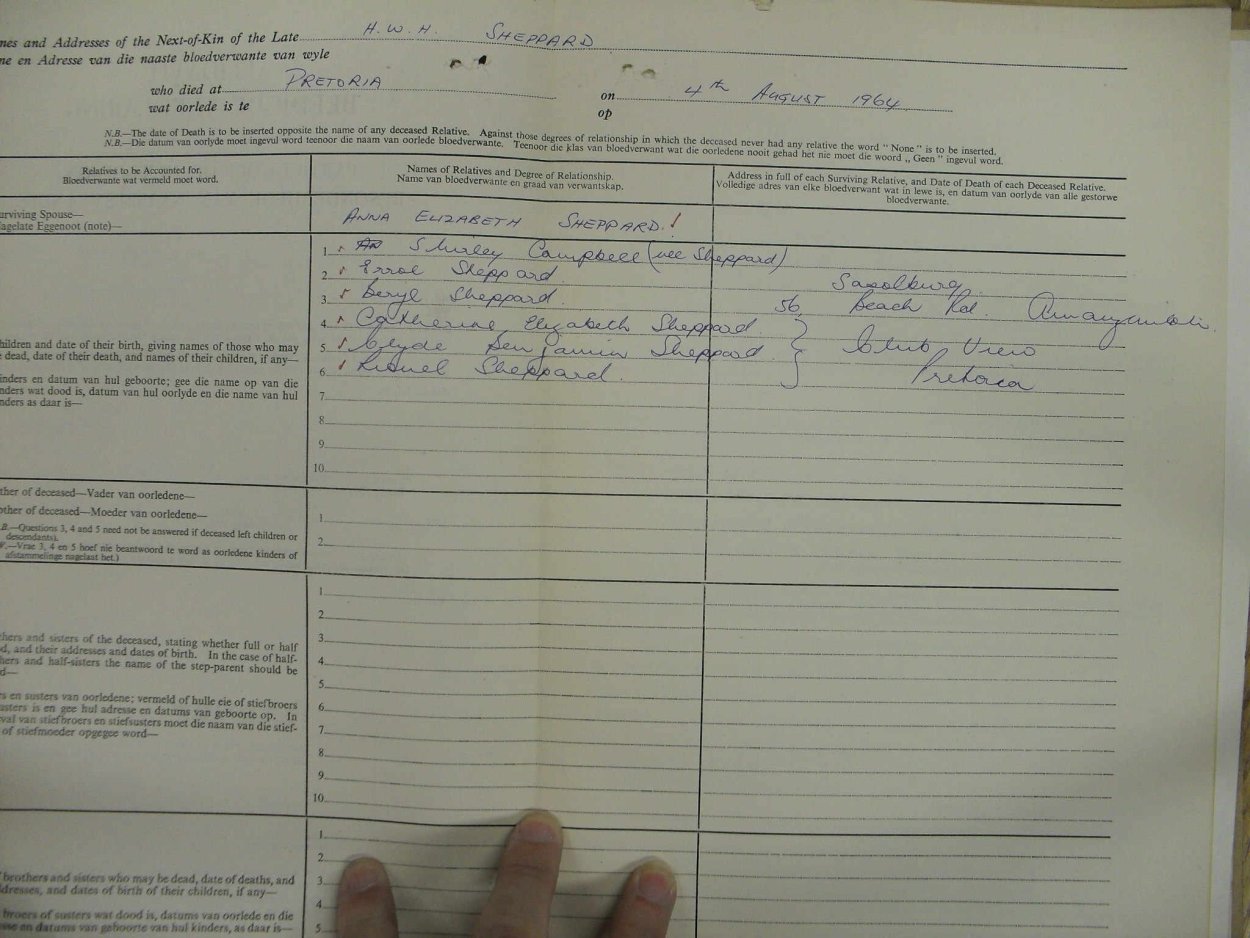 nes and Addresses of the Next-of-Kin of the Late H. W. H. SHEPPARD
ne en Adresse van die naaste bloedverwante van wyle
who died at PRETORIA on 4th AUGUST 1964
wat oorlede is te op
N.B.—The date of Death is to be inserted opposite the name of any deceased Relative. Against those degrees of relationship in which the deceased never had any relative the word "None" is to be inserted.
N.B.—Die datum van oorlyde moet ingevul word teenoor die naam van oorlede bloedverwante. Teenoor die klas van bloedverwant wat die oorledene nooit gehad het nie moet die woord „Geen" ingevul word.
Relatives to be Accounted for.
Bloedverwante wat vermeld moet word.
Names of Relatives and Degree of Relationship.
Name van bloedverwante en graad van verwantskap.
Address in full of each Surviving Relative, and Date of Death of each Deceased Relative.
Volledige adres van elke bloedverwant wat in lewe is, en datum van oorlyde van alle gestorwe
bloedverwante.
urviving Spouse—
agelate Eggenoot (note)—
ANNA ELIZABETH SHEPPARD.
1 Shirley Campbell (nee Sheppard)
2 Errol Sheppard. Sasolburg.
3 Beryl Sheppard. 56, Beach Rd.
4 Catherine Elizabeth Sheppard.
5 Clyde Benjamin Sheppard Club View
6 Lionel Sheppard. Pretoria
7
8
9
10
hildren and date of their birth, giving names of those who may
e dead, date of their death, and names of their children, if any—
inders en datum van hul geboorte; gee die name op van die
nders wat dood is, datum van hul oorlyde en die name van hul
nders as daar is—
ther of deceased—Vader van oorledene—
other of deceased—Moeder van oorledene—
B.—Questions 3, 4 and 5 need not be answered if deceased left children or
descendants).
.—Vrae 3, 4 en 5 hoef nie beantwoord te word as oorledene kinders of
afstammelinge nagelaat het.)
1
2
thers and sisters of the deceased, stating whether full or half
d, and their addresses and dates of birth. In the case of half-
hers and half-sisters the name of the step-parent should be
d—
rs en susters van oorledene; vermeld of hulle eie of stiefbroers
usters is en gee hul adresse en datums van geboorte op. In
val van stiefbroers en stiefsusters moet die naam van die stief-
of stiefmoeder opgegee word—
1
2
3
4
5
6
7
8
9
10
brothers and sisters who may be dead, date of deaths, and
dresses, and dates of birth of their children, if any—
broers of susters wat dood is, datums van oorlede en die
sse en datums van geboorte van hul kinders, as daar is—
1
2
3
4
5